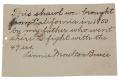 This shawl was brought
from California in 1850
by my father who went
there to fight with the
49ers
Annie Moulton Bruce